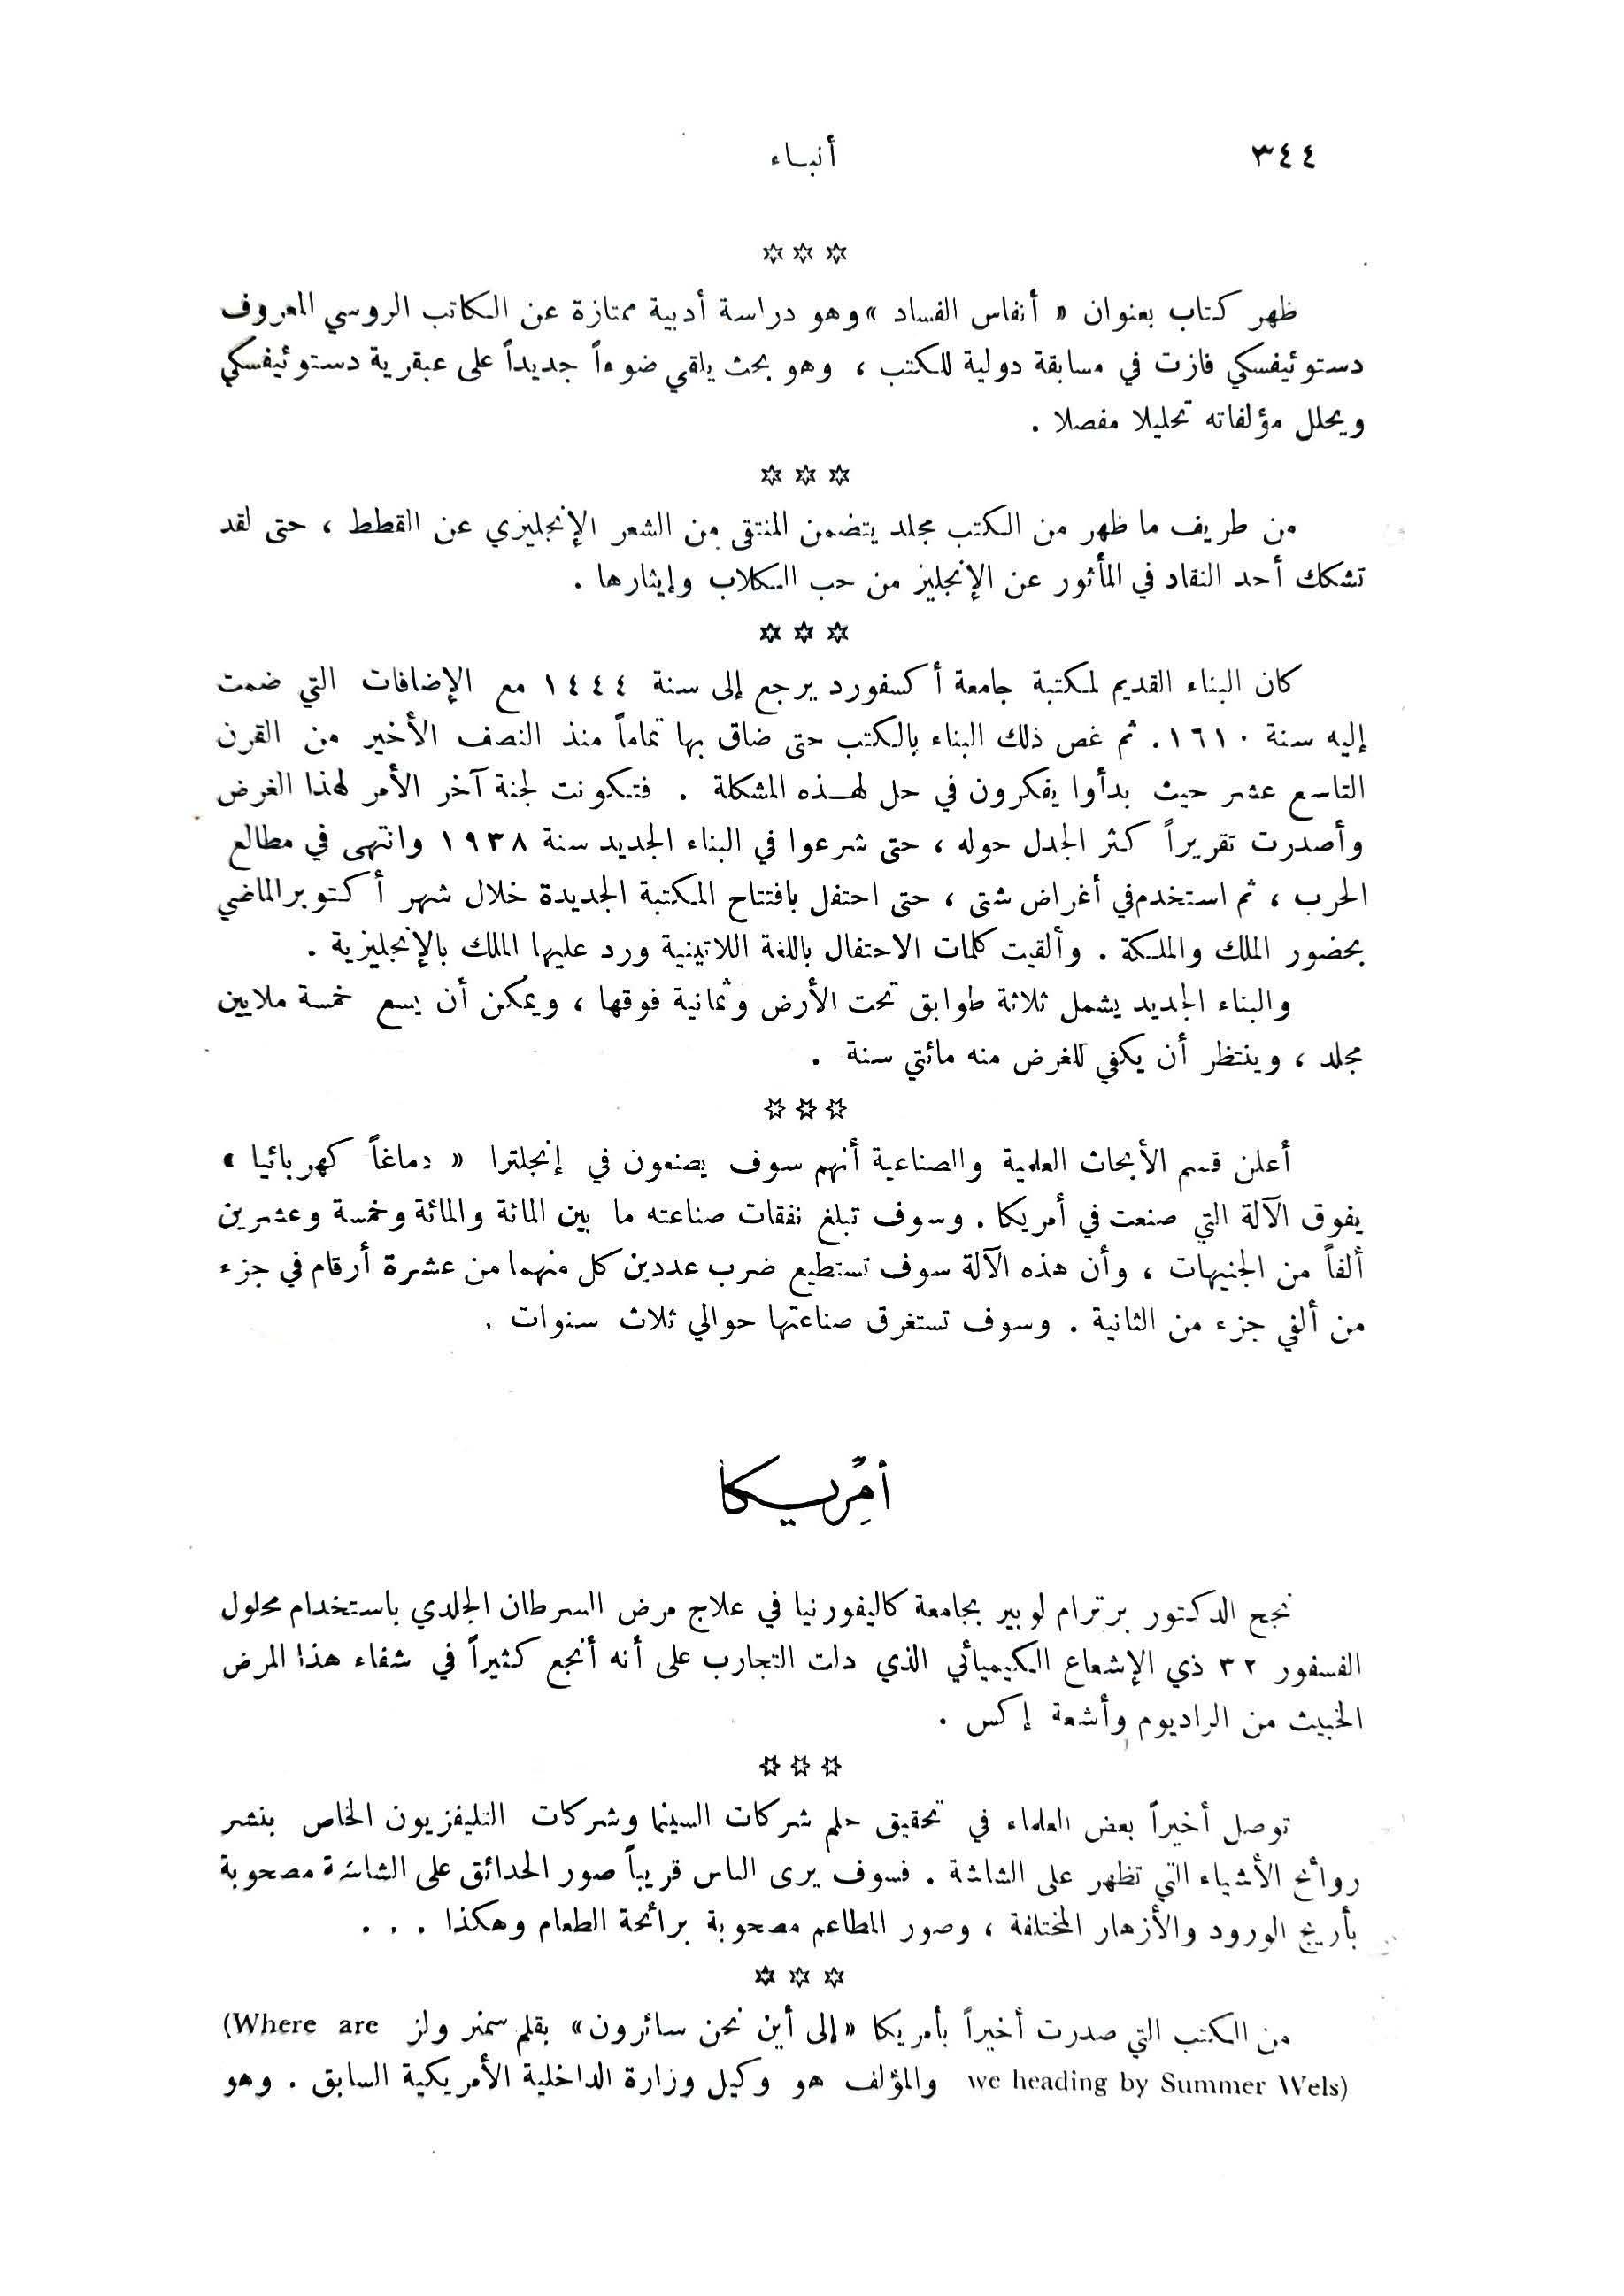 ٣٤٤
أنباء
☆ ☆ ☆
ظهر كتاب بعنوان « أنفاس الفساد » وهو دراسة أدبية ممتازة عن الكاتب الروسي المعروف
دستوئيفسكي فازت في مسابقة دولية للكتب ، وهو بحث يلقي ضوءاً جديداً على عبقرية دستوئيفسكي
ويحلل مؤلفاته تحليلا مفصلا .
☆ ☆ ☆
من طريف ما ظهر من الكتب مجلد يتضمن المنتقى من الشعر الإنجليزي عن القطط ، حتى لقد
تشكك أحد النقاد في المأثور عن الإنجليز من حب الكلاب وإيثارها .
☆ ☆ ☆
كان البناء القديم لمكتبة جامعة أكسفورد يرجع إلى سنة ١٤٤٤ مع الإضافات التي ضمت
إليه سنة ١٦١٠. ثم غص ذلك البناء بالكتب حتى ضاق بها تماماً منذ النصف الأخير من القرن
التاسع عشر حيث بدأوا يفكرون في حل لهذه المشكلة . فتكونت لجنة آخر الأمر لهذا الغرض
وأصدرت تقريراً كثر الجدل حوله ، حتى شرعوا في البناء الجديد سنة ١٩٣٨ وانتهى في مطالع
الحرب ، ثم استخدم في أغراض شتى ، حتى احتفل بافتتاح المكتبة الجديدة خلال شهر أكتوبر الماضي
بحضور الملك والملكة . وألقيت كلمات الاحتفال باللغة اللاتينية ورد عليها الملك بالإنجليزية .
والبناء الجديد يشمل ثلاثة طوابق تحت الأرض وثمانية فوقها ، ويمكن أن يسع خمسة ملايين
مجلد ، وينتظر أن يكفي للغرض منه مائتي سنة .
☆ ☆ ☆
أعلن قسم الأبحاث العلمية والصناعية أنهم سوف يصنعون في إنجلترا « دماغاً كهربائيا »
يفوق الآلة التي صنعت في أمريكا . وسوف تبلغ نفقات صناعته ما بين المائة والمائة وخمسة وعشرين
ألفاً من الجنيهات ، وأن هذه الآلة سوف تستطيع ضرب عددين كل منهما من عشرة أرقام في جزء
من ألفي جزء من الثانية . وسوف تستغرق صناعتها حوالي ثلاث سنوات .
أمْرِيكا
نجح الدكتور برترام لوبير بجامعة كاليفورنيا في علاج مرض السرطان الجلدي باستخدام محلول
الفسفور ٣٢ ذي الإشعاع الكيميائي الذي دلت التجارب على أنه أنجع كثيراً في شفاء هذا المرض
الخبيث من الراديوم وأشعة إكس .
☆ ☆ ☆
توصل أخيراً بعض العلماء في تحقيق حلم شركات السينما وشركات التليفزيون الخاص بنشر
روائح الأشياء التي تظهر على الشاشة . فسوف يرى الناس قريباً صور الحدائق على الشاشة مصحوبة
بأريج الورود والأزهار المختلفة ، وصور المطاعم مصحوبة برائحة الطعام وهكذا . . .
☆ ☆ ☆
من الكتب التي صدرت أخيراً بأمريكا «إلى أين نحن سائرون» بقلم سمنر ولز (Where are
we heading by Summer Wels) والمؤلف هو وكيل وزارة الداخلية الأمريكية السابق . وهو